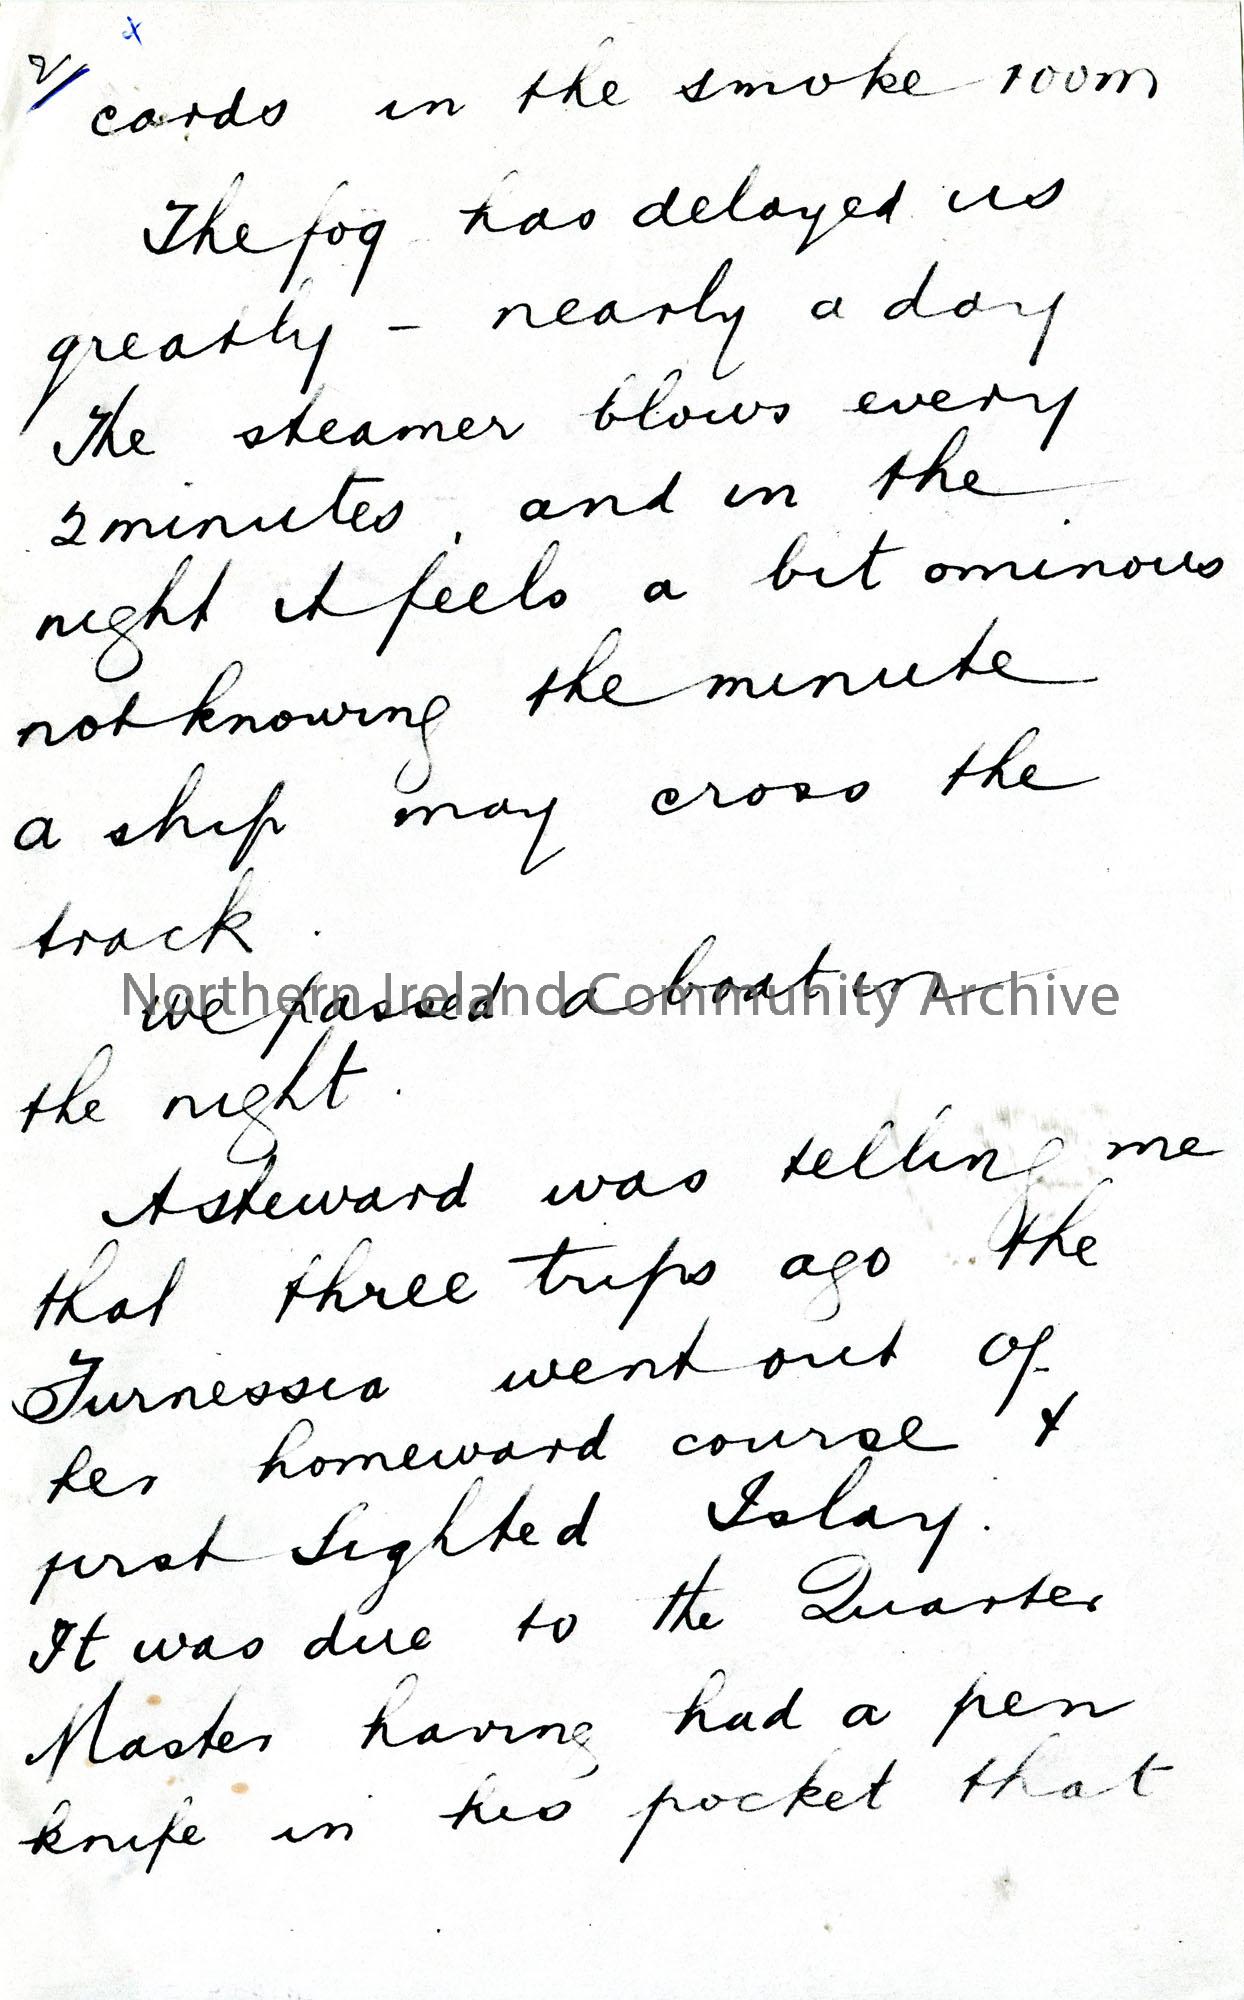 2/
cards in the smoke room
The fog has delayed us
greatly – nearly a day
The steamer blows every
2 minutes, and in the
night it feels a bit ominous
not knowing the minute
a ship may cross the
track.
we passed a boat in
Northern Ireland Community Archive
the night.
A steward was telling me
that three trips ago the
Furnessia went out of
her homeward course &
first sighted Islay.
It was due to the Quarter
Master having had a pen
knife in his pocket that